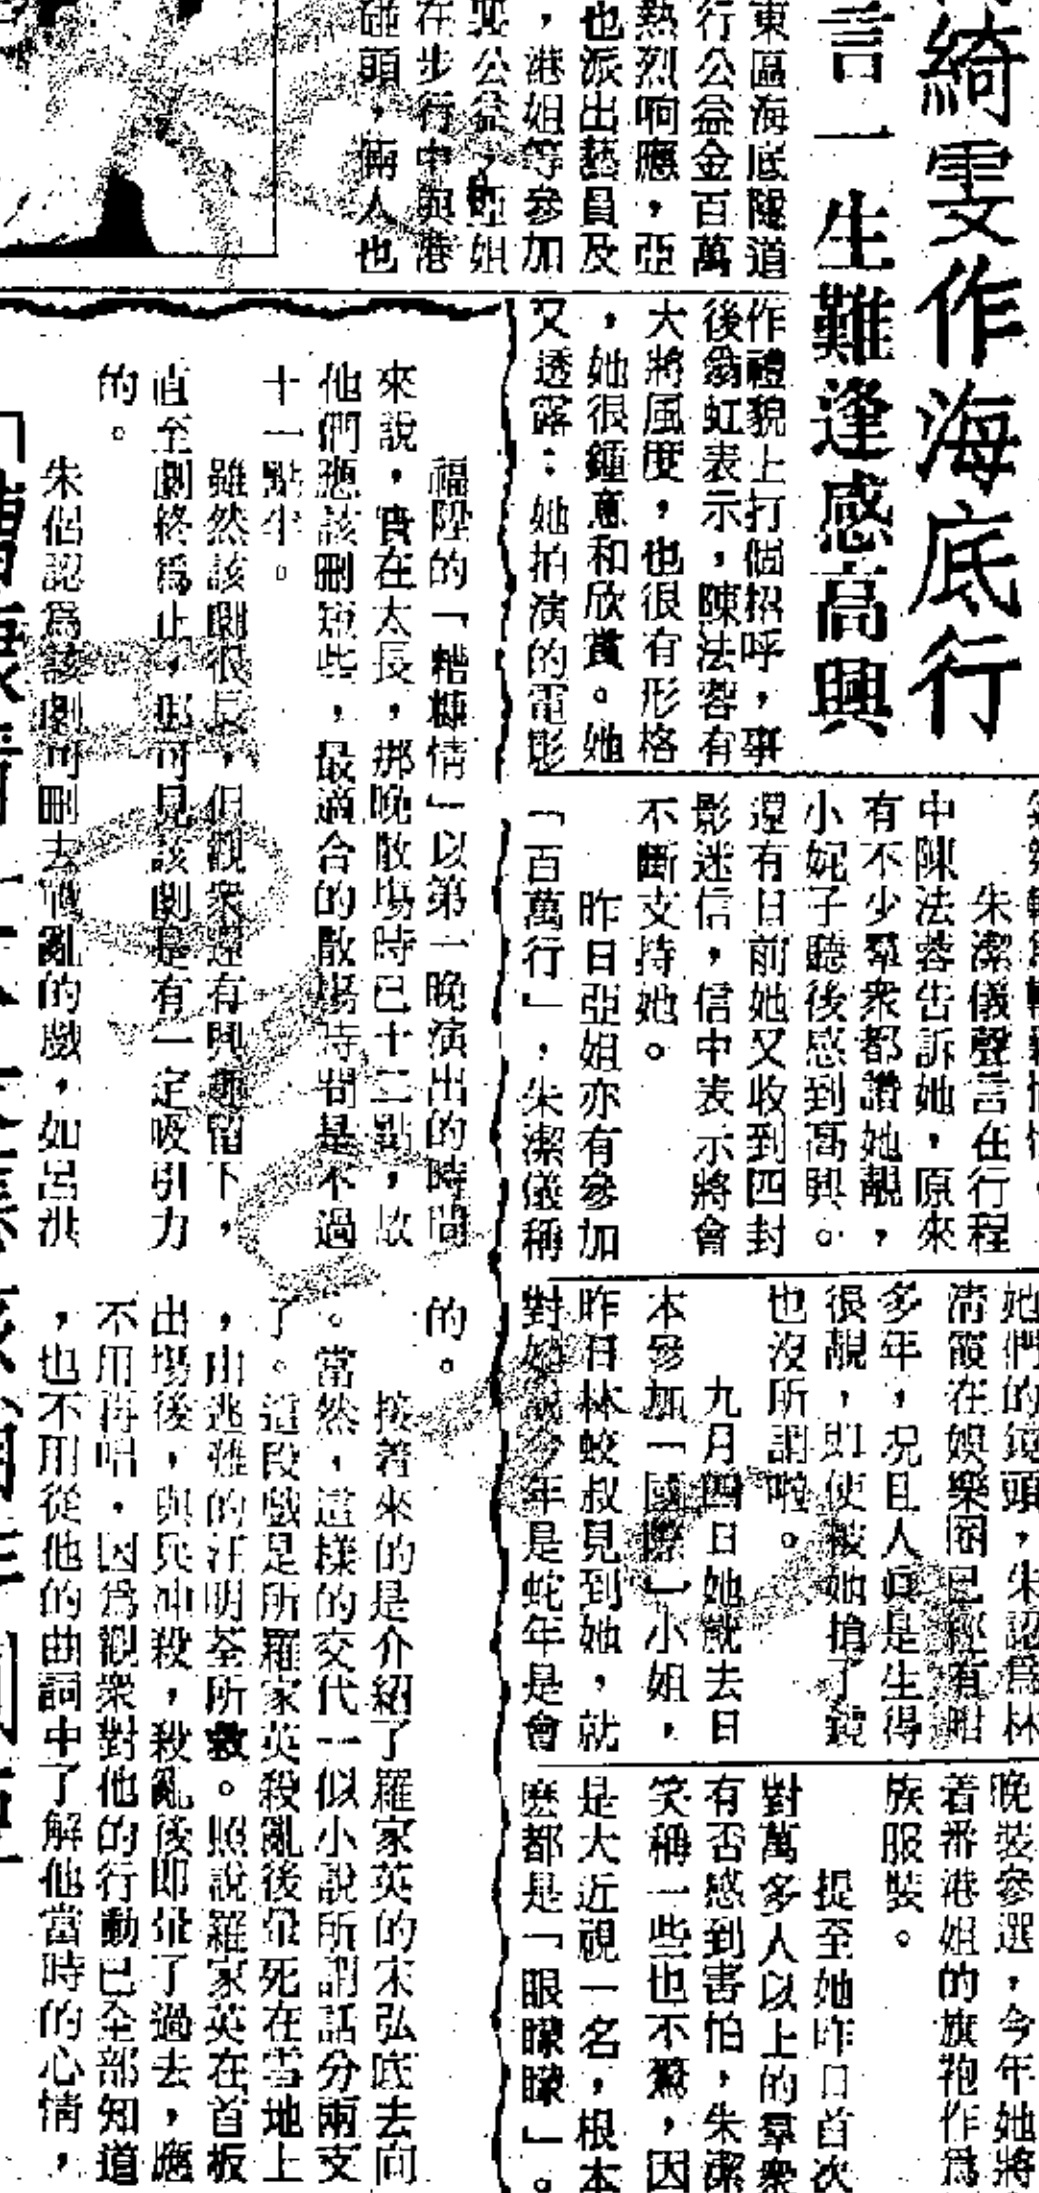 綺雯作海底行
言一生難逢感高興
東區海底隧道
行公益金百萬
熱烈响應，亞
也派出藝員及
，港姐等參加
公益，亞姐
在步行中與港
碰頭，倆人也
作禮貌上打個招呼，事
後翁虹表示，陳法蓉有
大將風度，也很有形格
，她很鍾意和欣賞。她
又透露：她拍演的電影
朱潔儀聲言在行程
中陳法蓉告訴她，原來
有不少羣衆都讚她靚，
小妮子聽後感到高興。
還有日前她又收到四封
影迷信，信中表示將會
不斷支持她。
昨日亞姐亦有參加
「百萬行」，朱潔儀稱
她們的鏡頭，朱認爲林
淸霞在娛樂圈已經有咁
多年，况且人眞是生得
很靚，即使被她搶了鏡
也沒所謂啦。
九月四日她就去日
本參加「國際」小姐，
昨日林蛟叔見到她，就
對她說今年是蛇年是會
晚裝參選，今年她將
着番港姐的旗袍作爲
族服裝。
提至她昨日首次
對萬多人以上的羣衆
有否感到害怕，朱潔
笑稱一些也不驚，因
是大近視一名，根本
麽都是「眼矇矇」。
福陞的「糟糠情」以第一晚演出的時間
來說，實在太長，那晚散塲時已十二點，故
他們應該刪短些，最適合的散塲時間是不過
十一點半。
雖然該劇很長，但觀衆還有興趣留下，
直至劇終爲止，那可見該劇是有一定吸引力
的。
朱侶認爲該劇可刪去戰亂的戲，如呂洪
的。
接着來的是介紹了羅家英的宋弘底去向
。當然，這樣的交代一似小說所謂話分兩支
了。這段戲是所羅家英殺亂後暈死在雪地上
，由逃難的汪明荃所救。照說羅家英在首板
出塲後，與兵冲殺，殺亂後即暈了過去，應
不用再唱，因爲觀衆對他的行動已全部知道
，也不用從他的曲詞中了解他當時的心情，